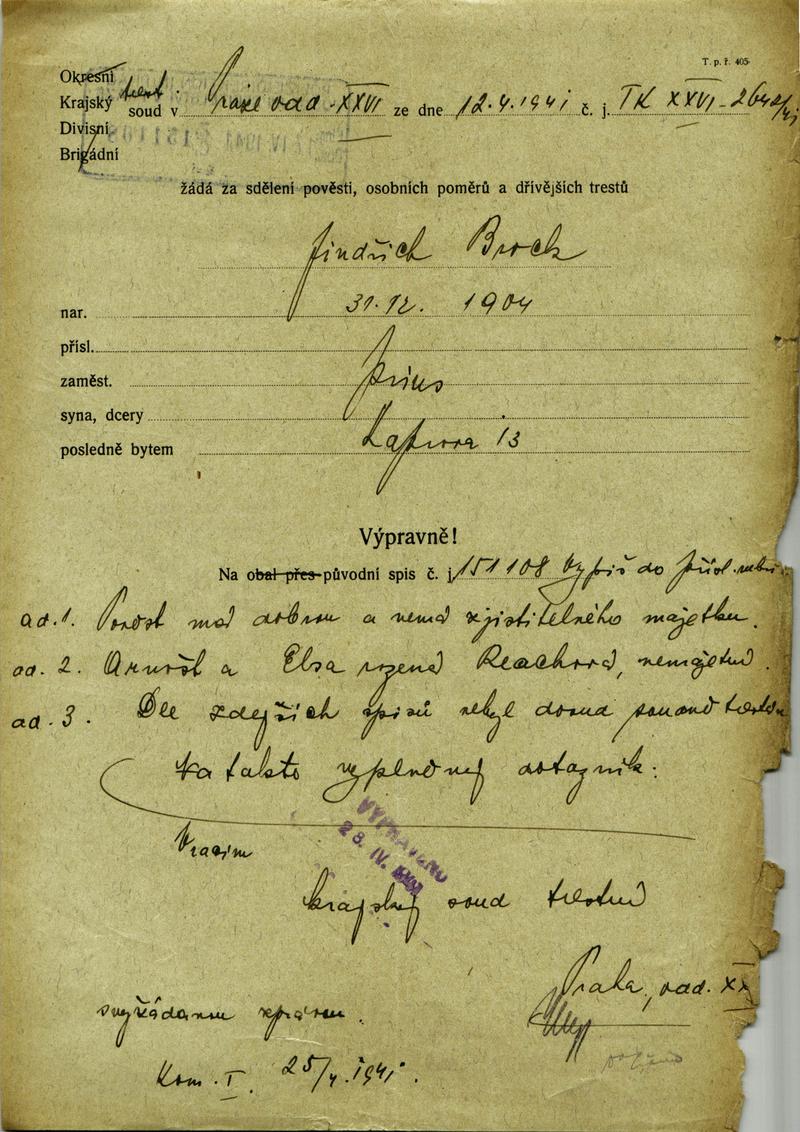 T. p. ř. 405
Okresní
Krajský trest. soud v Praze odd. XXVI ze dne 12.4.1941 č. j. TK XXVI-2642/41
Divisní
Brigádní
žádá za sdělení pověsti, osobních poměrů a dřívějších trestů
Jindřich Brock
nar. 31.12. 1904
přísl.
zaměst.
syna, dcery
posledně bytem 13
Výpravně!
Na obal přes původní spis č. j. 151108 Vypiš do
ad. 1. Pověst má dobrou a nemá zjistitelného majetku.
ad. 2. Arnošt a Elsa rozená nemajetní.
ad. 3. Dle zdejších spisů nebyl dosud soudně trestán
Na takto vyplněný dotazník:
Vracím
VYPRAVENO
28. IV. 1941
krajský soud trestní
Praha, odd. XX
s vyžádanou zprávou.
Kom. I. 25/4. 1941.